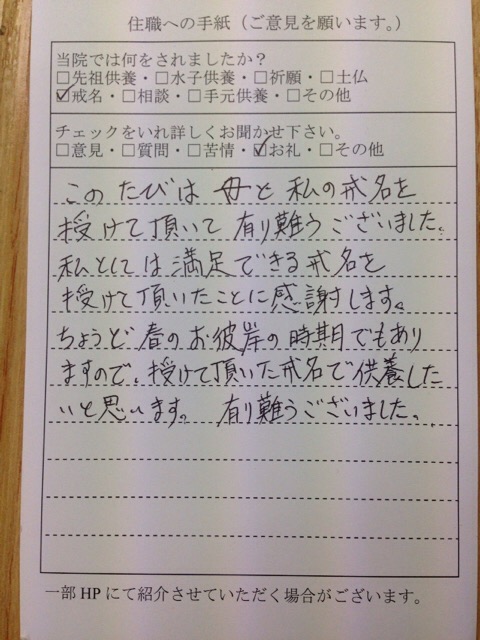 住職への手紙（ご意見を願います。）
当院では何をされましたか？
□先祖供養・□水子供養・□祈願・□土仏
☑戒名・□相談・□手元供養・□その他
チェックをいれ詳しくお聞かせ下さい。
□意見・□質問・□苦情・☑お礼・□その他
このたびは母と私の戒名を
授けて頂いて有り難うございました。
私としては満足できる戒名を
授けて頂いたことに感謝します。
ちょうど春のお彼岸の時期でもあり
ますので、授けて頂いた戒名で供養した
いと思います。有り難うございました。
一部HPにて紹介させていただく場合がございます。